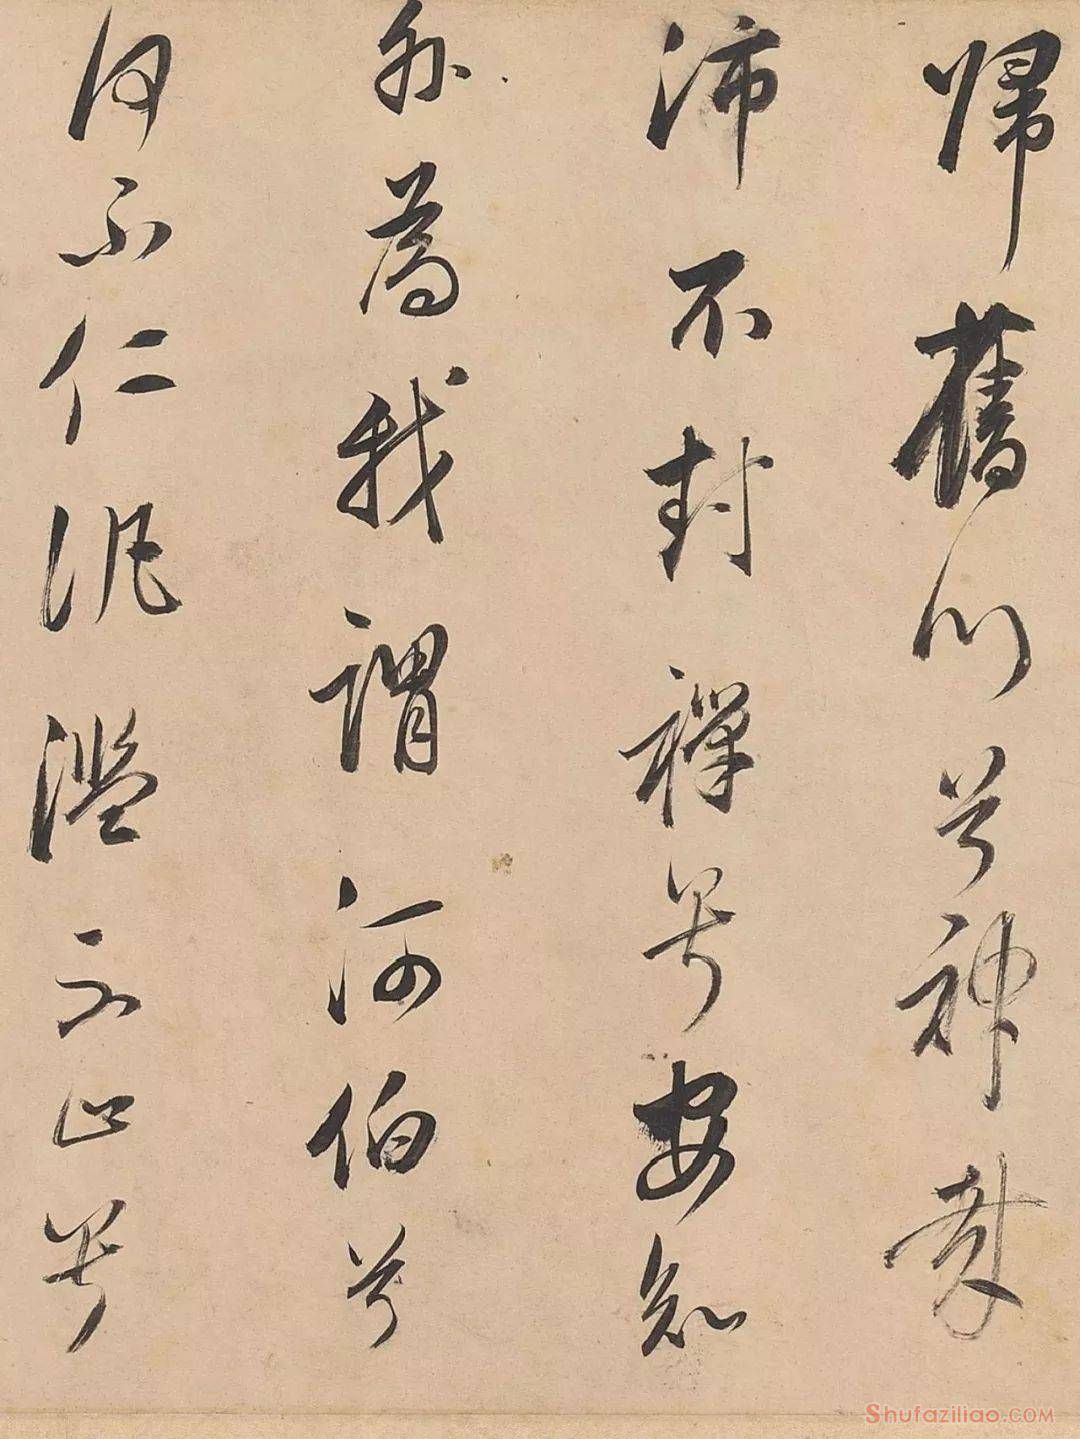 歸舊川兮神哉
沛不封禪兮安知
外為我謂河伯兮
何不仁泛濫不止兮
Shufaziliao.COM